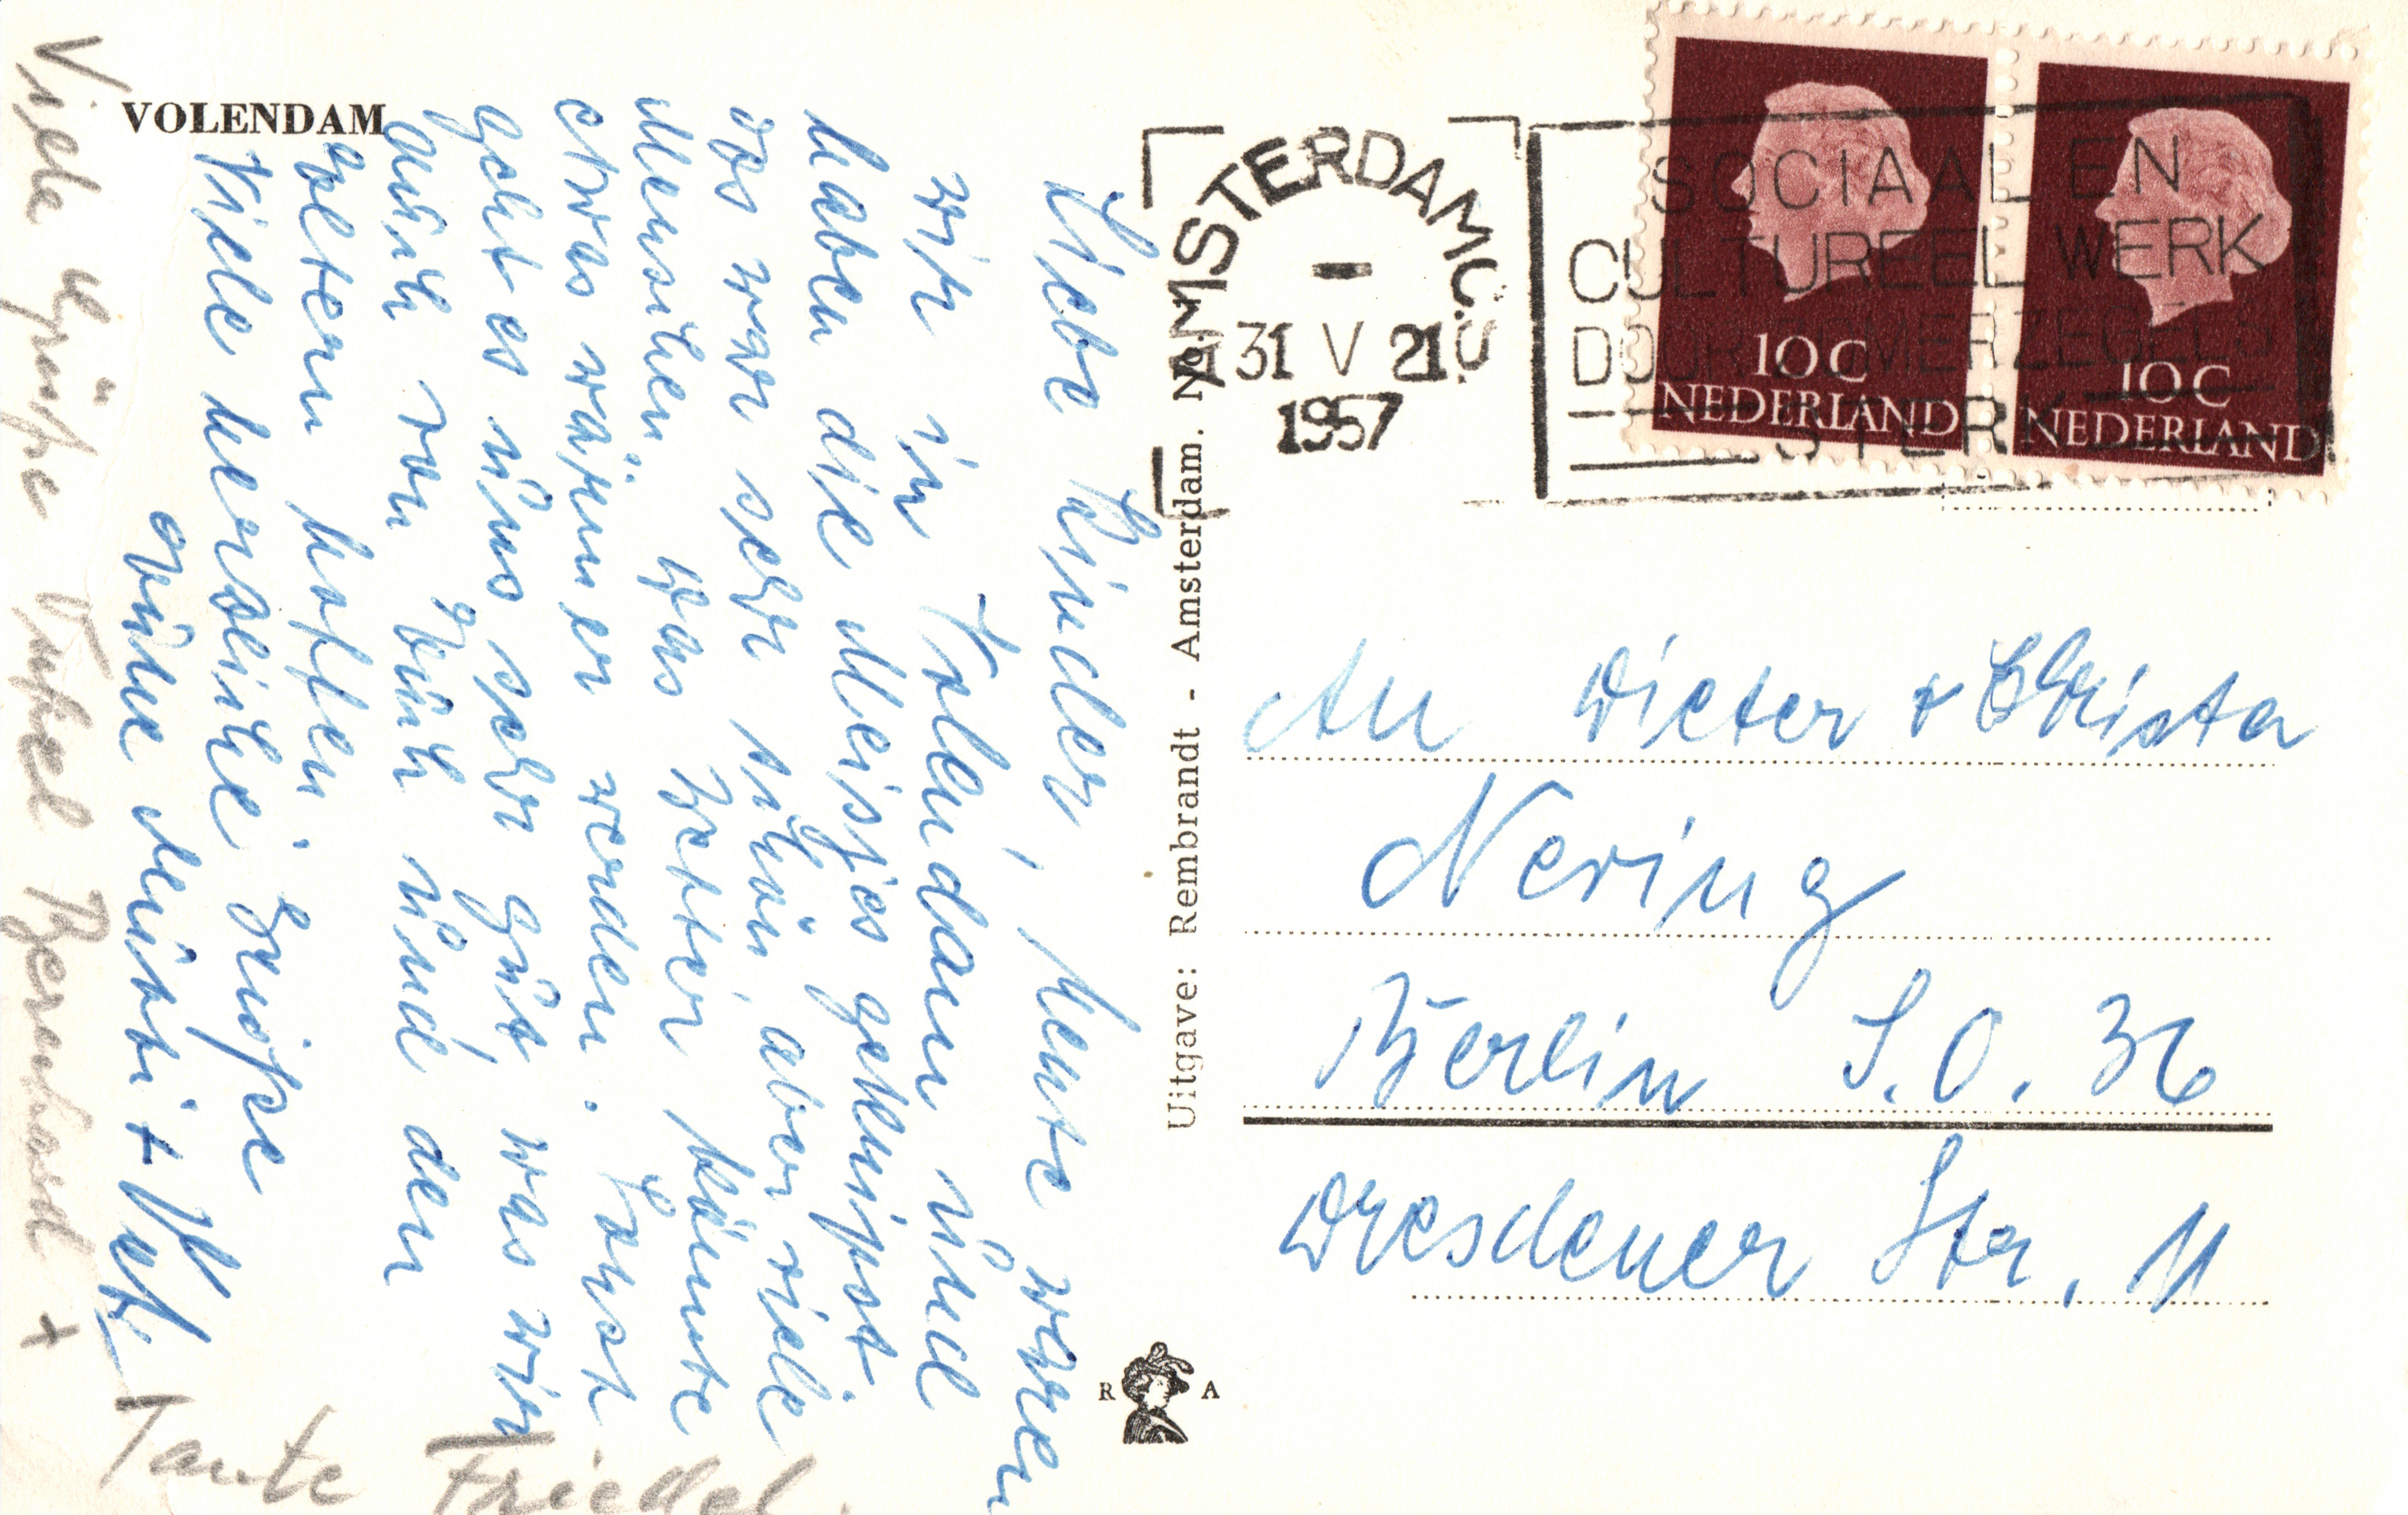 VOLENDAM
Liebe Kinder, heute waren
wir in Volendam und
haben die Meisjes geknipst.
Das war sehr schön, aber viele
Menschen. Das Wetter könnte
etwas wärmer werden. Sonst
geht es uns sehr gut, was wir
auch von Euch und den
Eltern hoffen.
Viele herzliche Grüße
Eure Mutti + Vati
Viele Grüße Onkel Bernhard +
Tante Friedel.
Uitgave: Rembrandt - Amsterdam. No.
R A
AMSTERDAM C.S.
31 V 21
1957
SOCIAAL EN
CULTUREEL WERK
DOOR ZOMERZEGELS
STERK
10 C
NEDERLAND
10 C
NEDERLAND
An Dieter + Christa
Nering
Berlin S.O. 36
Dresdener Str. 11